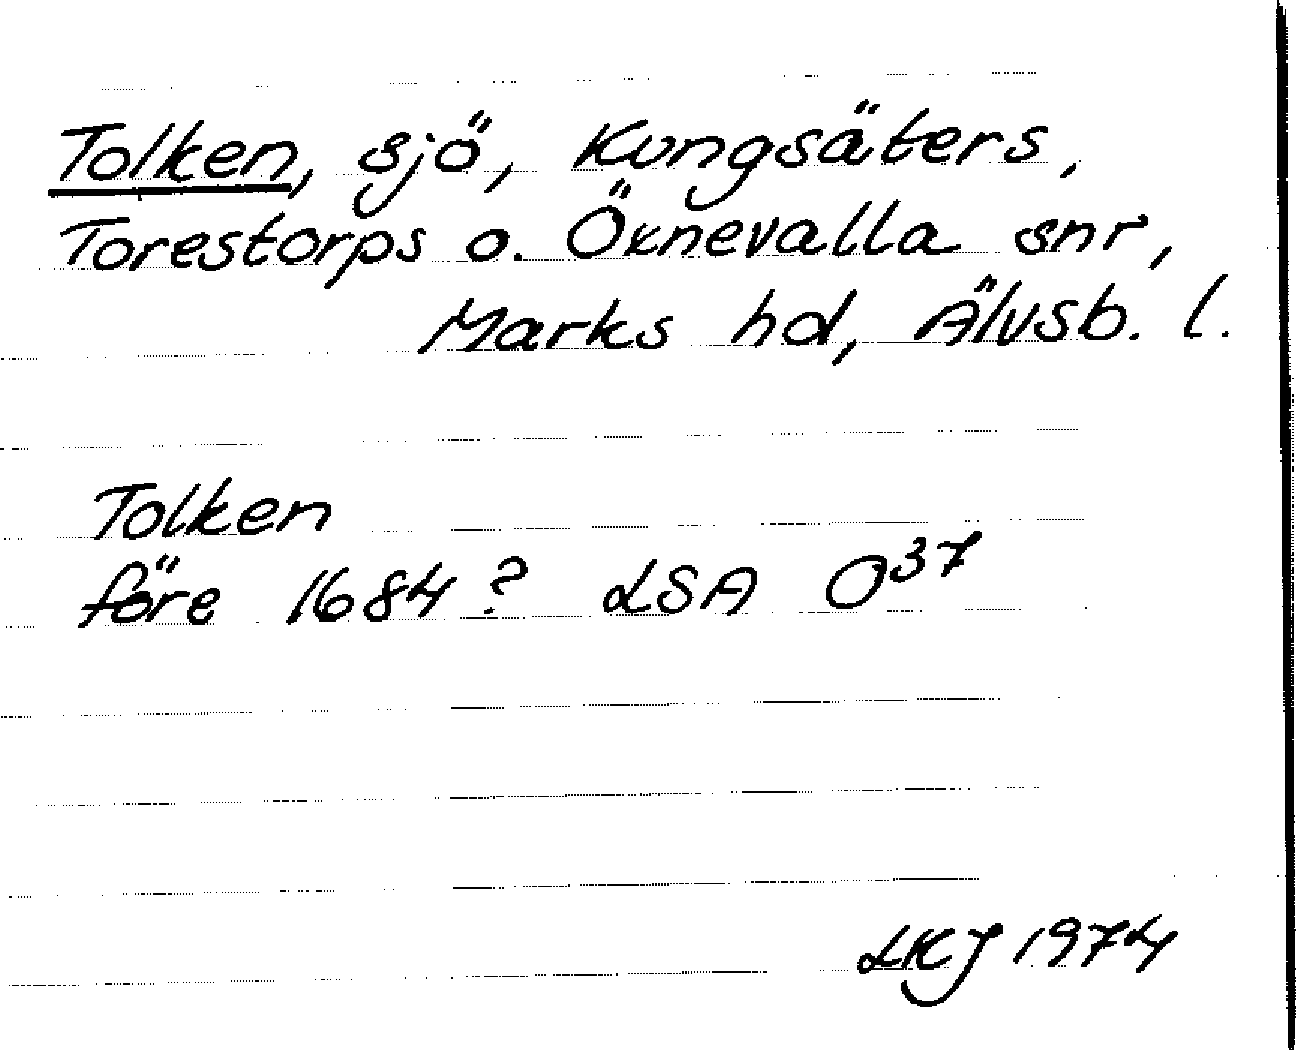 Tolken, sjö, Kungsäters,
Torestorps o. Öxnevalla snr,
Marks hd, Älvsb. l.
Tolken
före 1684? LSA O37
LKJ 1974